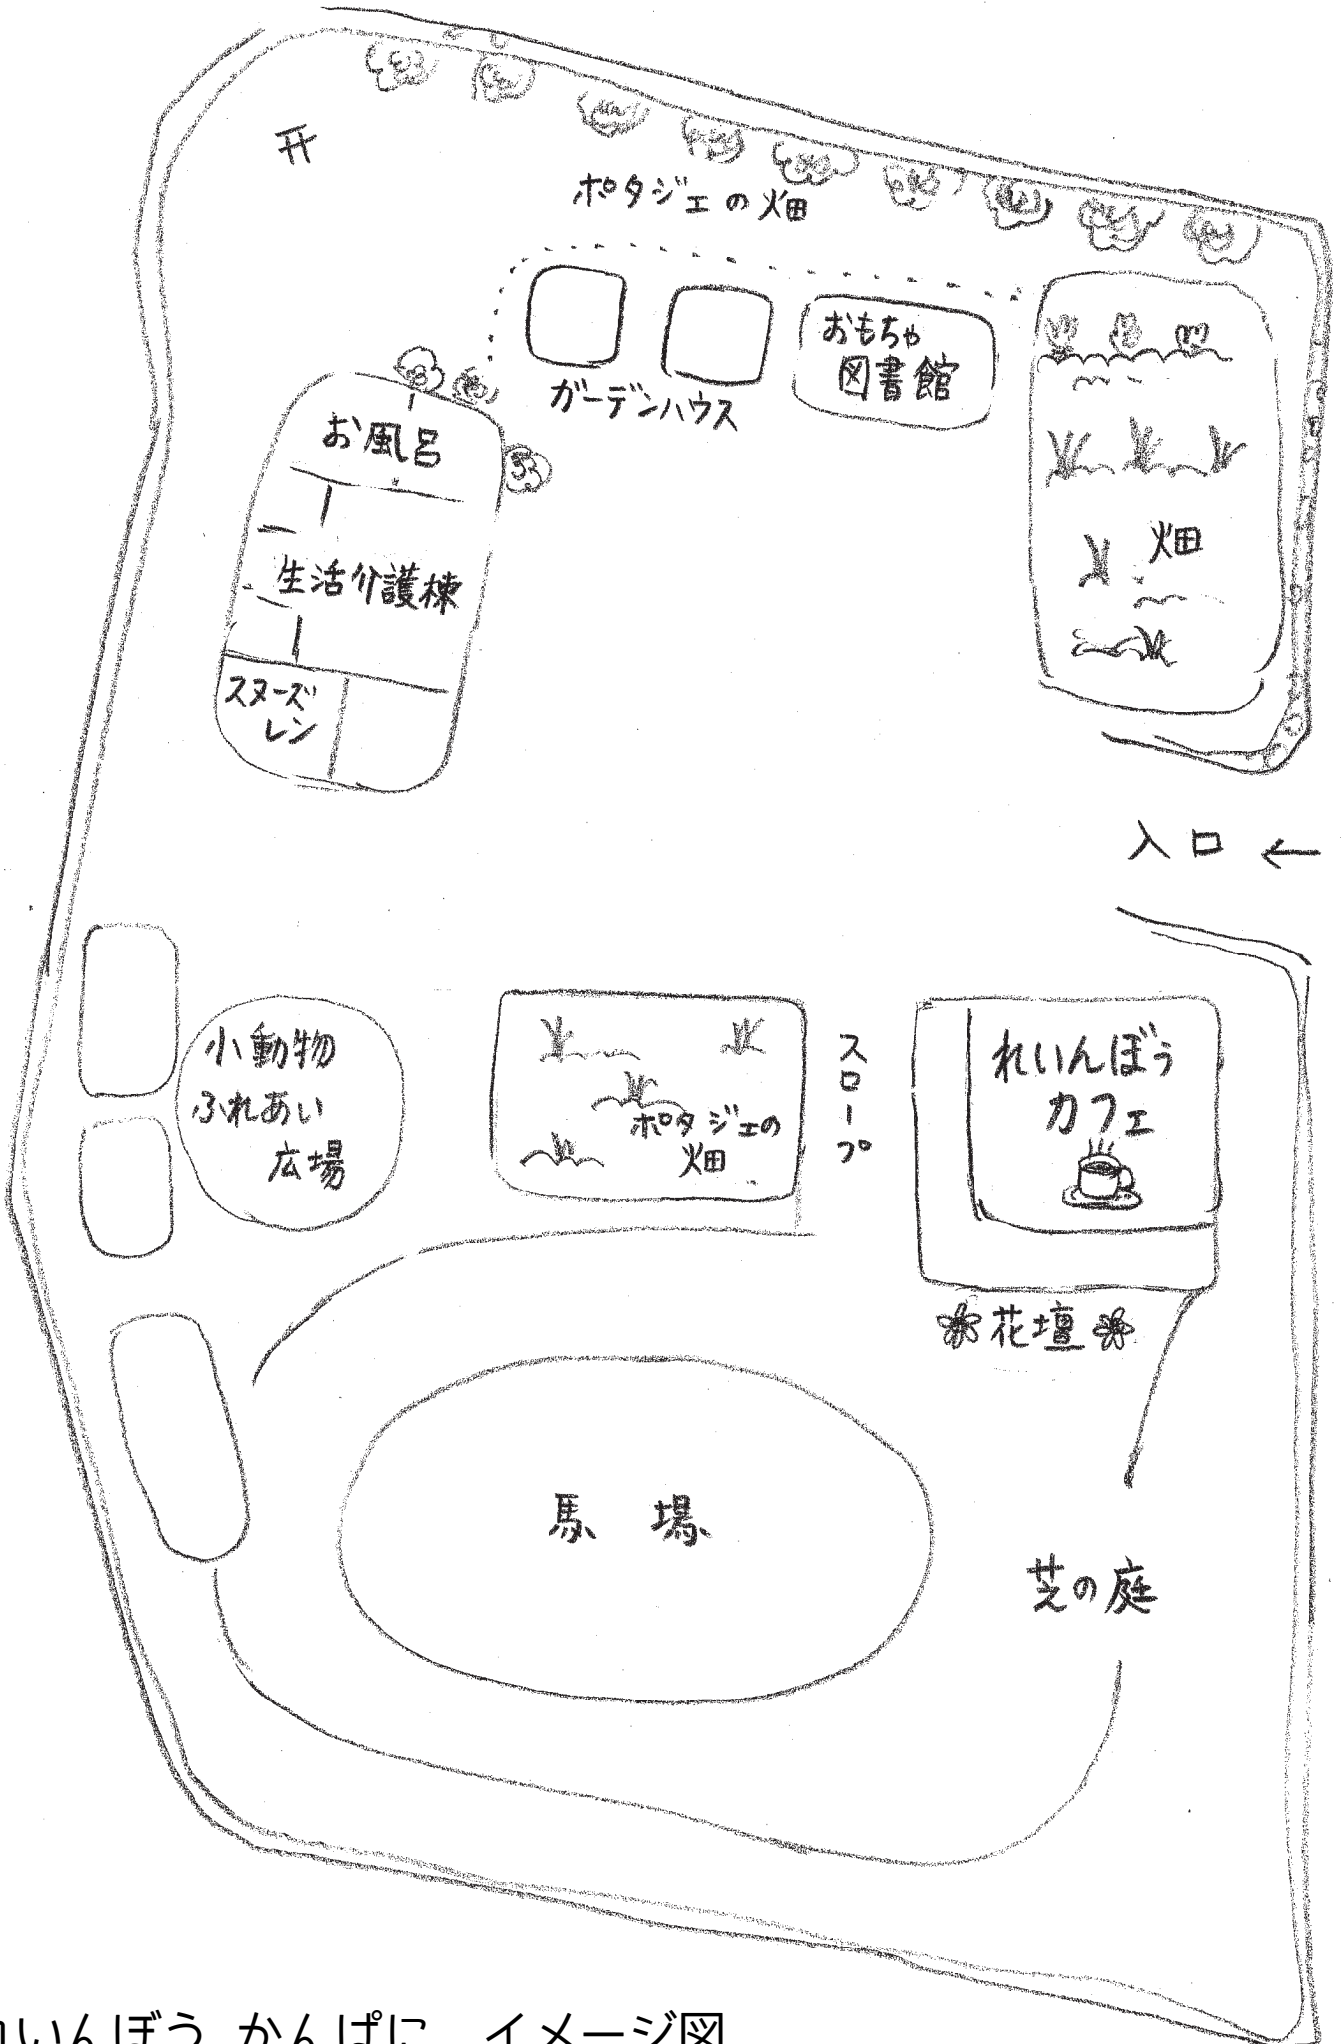 ポタジェの畑
おもちゃ
図書館
ガーデンハウス
お風呂
生活介護棟
スヌーズ
レン
畑
入口 ←
小動物
ふれあい
広場
ポタジェの
畑
スロープ
れいんぼう
カフェ
花壇
馬場
芝の庭
れいんぼう かんぱに イメージ図